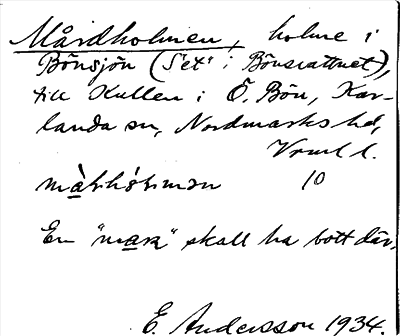 Mårdholmen, holme i
Bönsjön (Set' i Bönsvattnet),
till Kullen i Ö. Bön, Kar-
landa sn, Nordmarks hd,
Vrml l.
10
En "mara" skall ha bott där.
E. Andersson 1934.